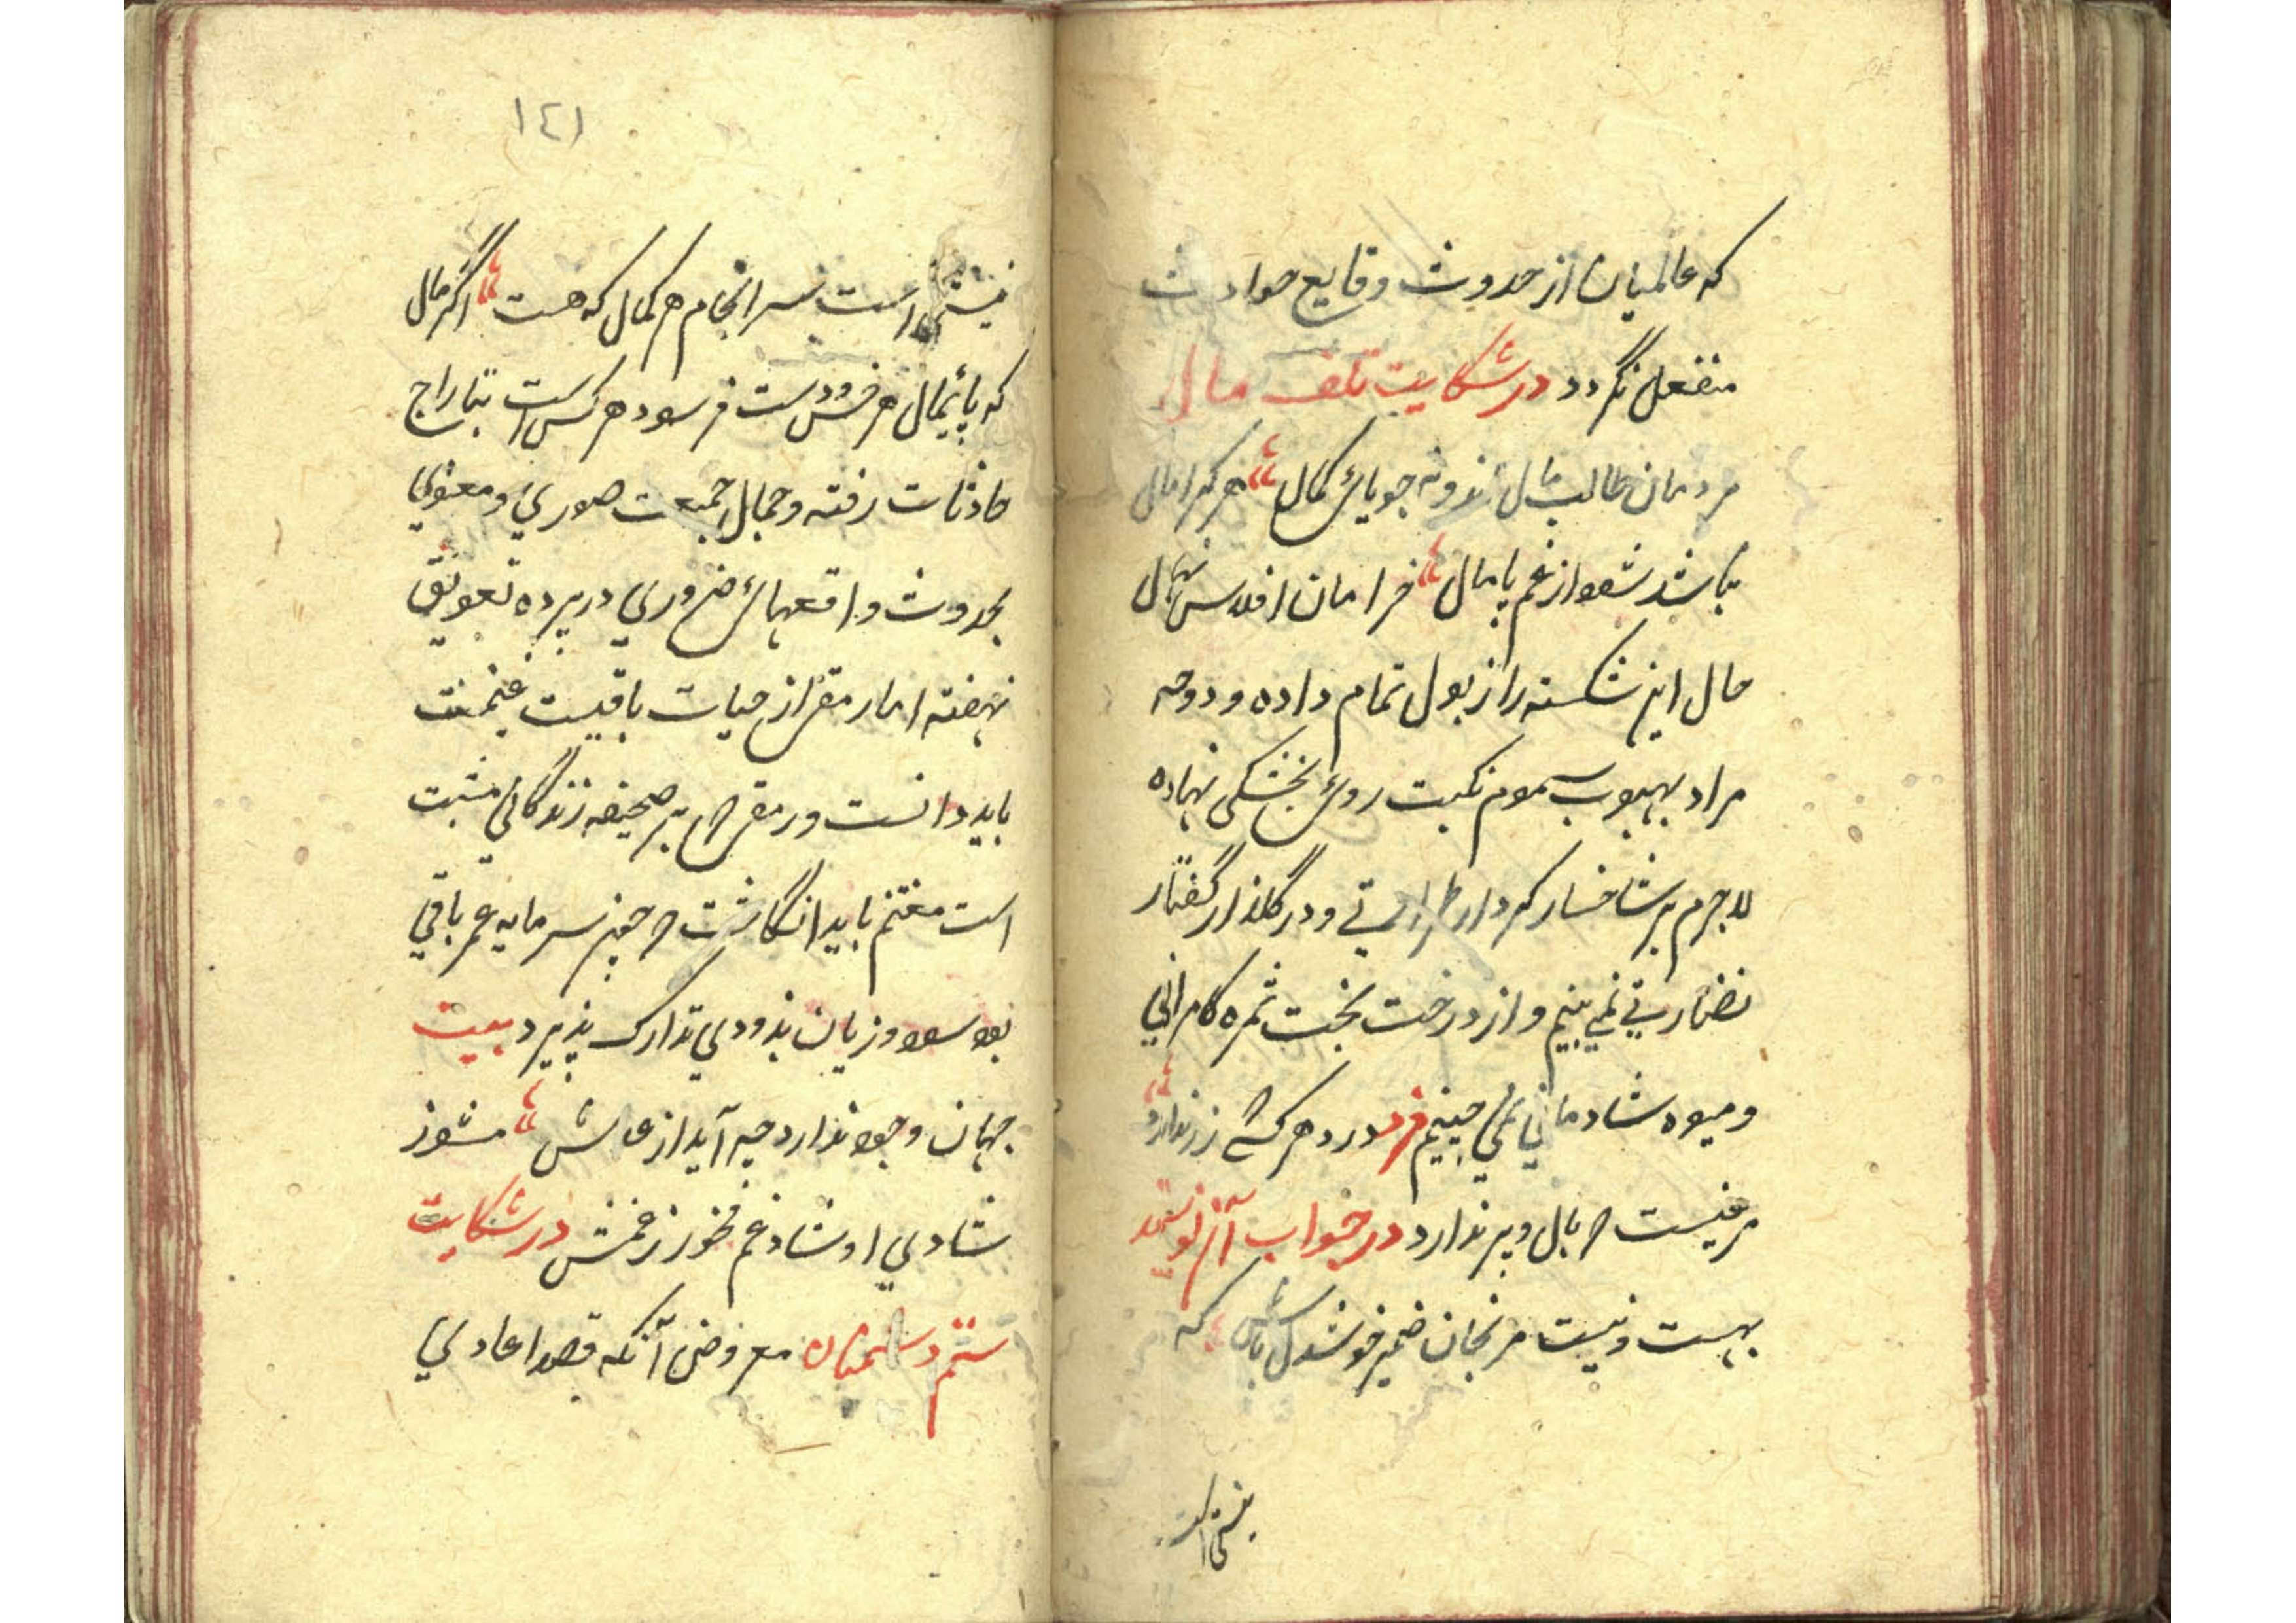 که عالمیان از حدوث وقایع حوادث
منفعل نگردد در شکایت تلف مال
مردمان طالب مال اند و نه جویای کمال هر کرا مال
نباشد شود از غم پامال خرامان افلاس نهال
حال این شکسته را ذبول تمام داده و دوحه
مراد بهبوب سموم نکبت روی بخشکی نهاده
لاجرم بر شاخسار کردار طراوتی و در گلذار گفتار
نضارتی نمی بینم و از درخت بخت ثمره کامرانی
و میوه شادمانی نمی چینم فرد در دهر کسی زر ندارد
مرغیست که بال و پر ندارد در جواب آن نویسند
بهست و نیست مرنجان ضمیر خوشدل باش که
نیستی است
۱۴۱
نیستی است سرانجام هر کمال که هست اگر مال
که پائمال هر خس و دست فرسود هر کس است بتاراج
حادثات رفته و جمال جمعیت صوری و معنوی
بحدوث واقعهای ضروری در پرده تعویق
نهفته اما رمقی از حیات باقیست غنیمت
باید دانست و رمقی که بر صحیفه زندگانی مثبت
است مغتنم باید انگاشت که چون سرمایه عمر باقی
بود سود و زیان بزودی تدارک پذیرد بیت
جهان وجود ندارد چه آید از عدمش مشو ز
شادی او شاد غم مخور ز غمش در شکایت
ستم دشمنان معروض آنکه قصد اعادی